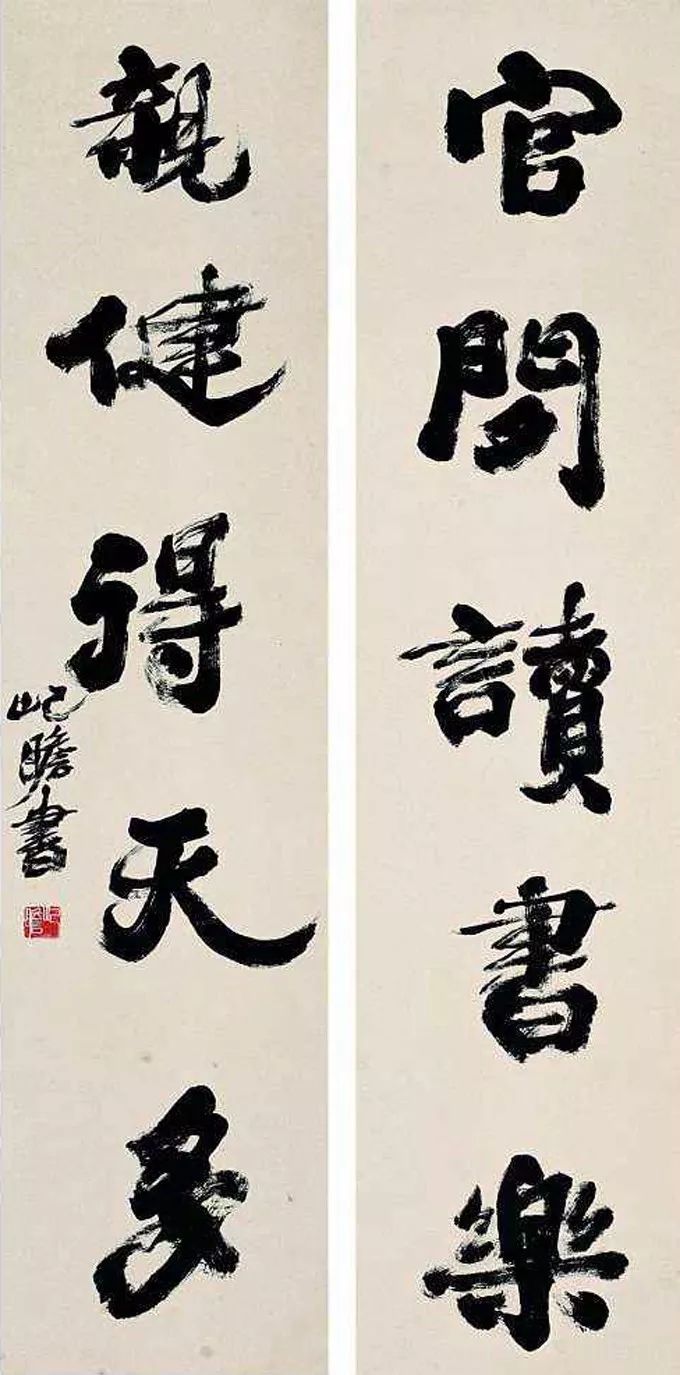 官閒讀書樂
親健得天多
屺瞻書